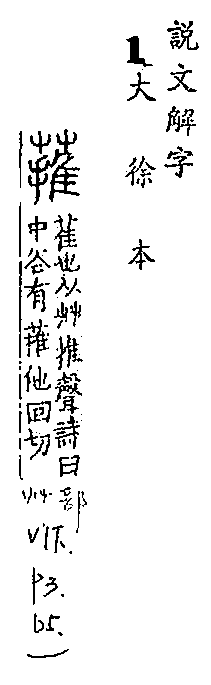 說文解字
1大徐本
蓷
萑也从艸推聲詩曰
中谷有蓷他回切
艸部
V1下.
P3.
b5.